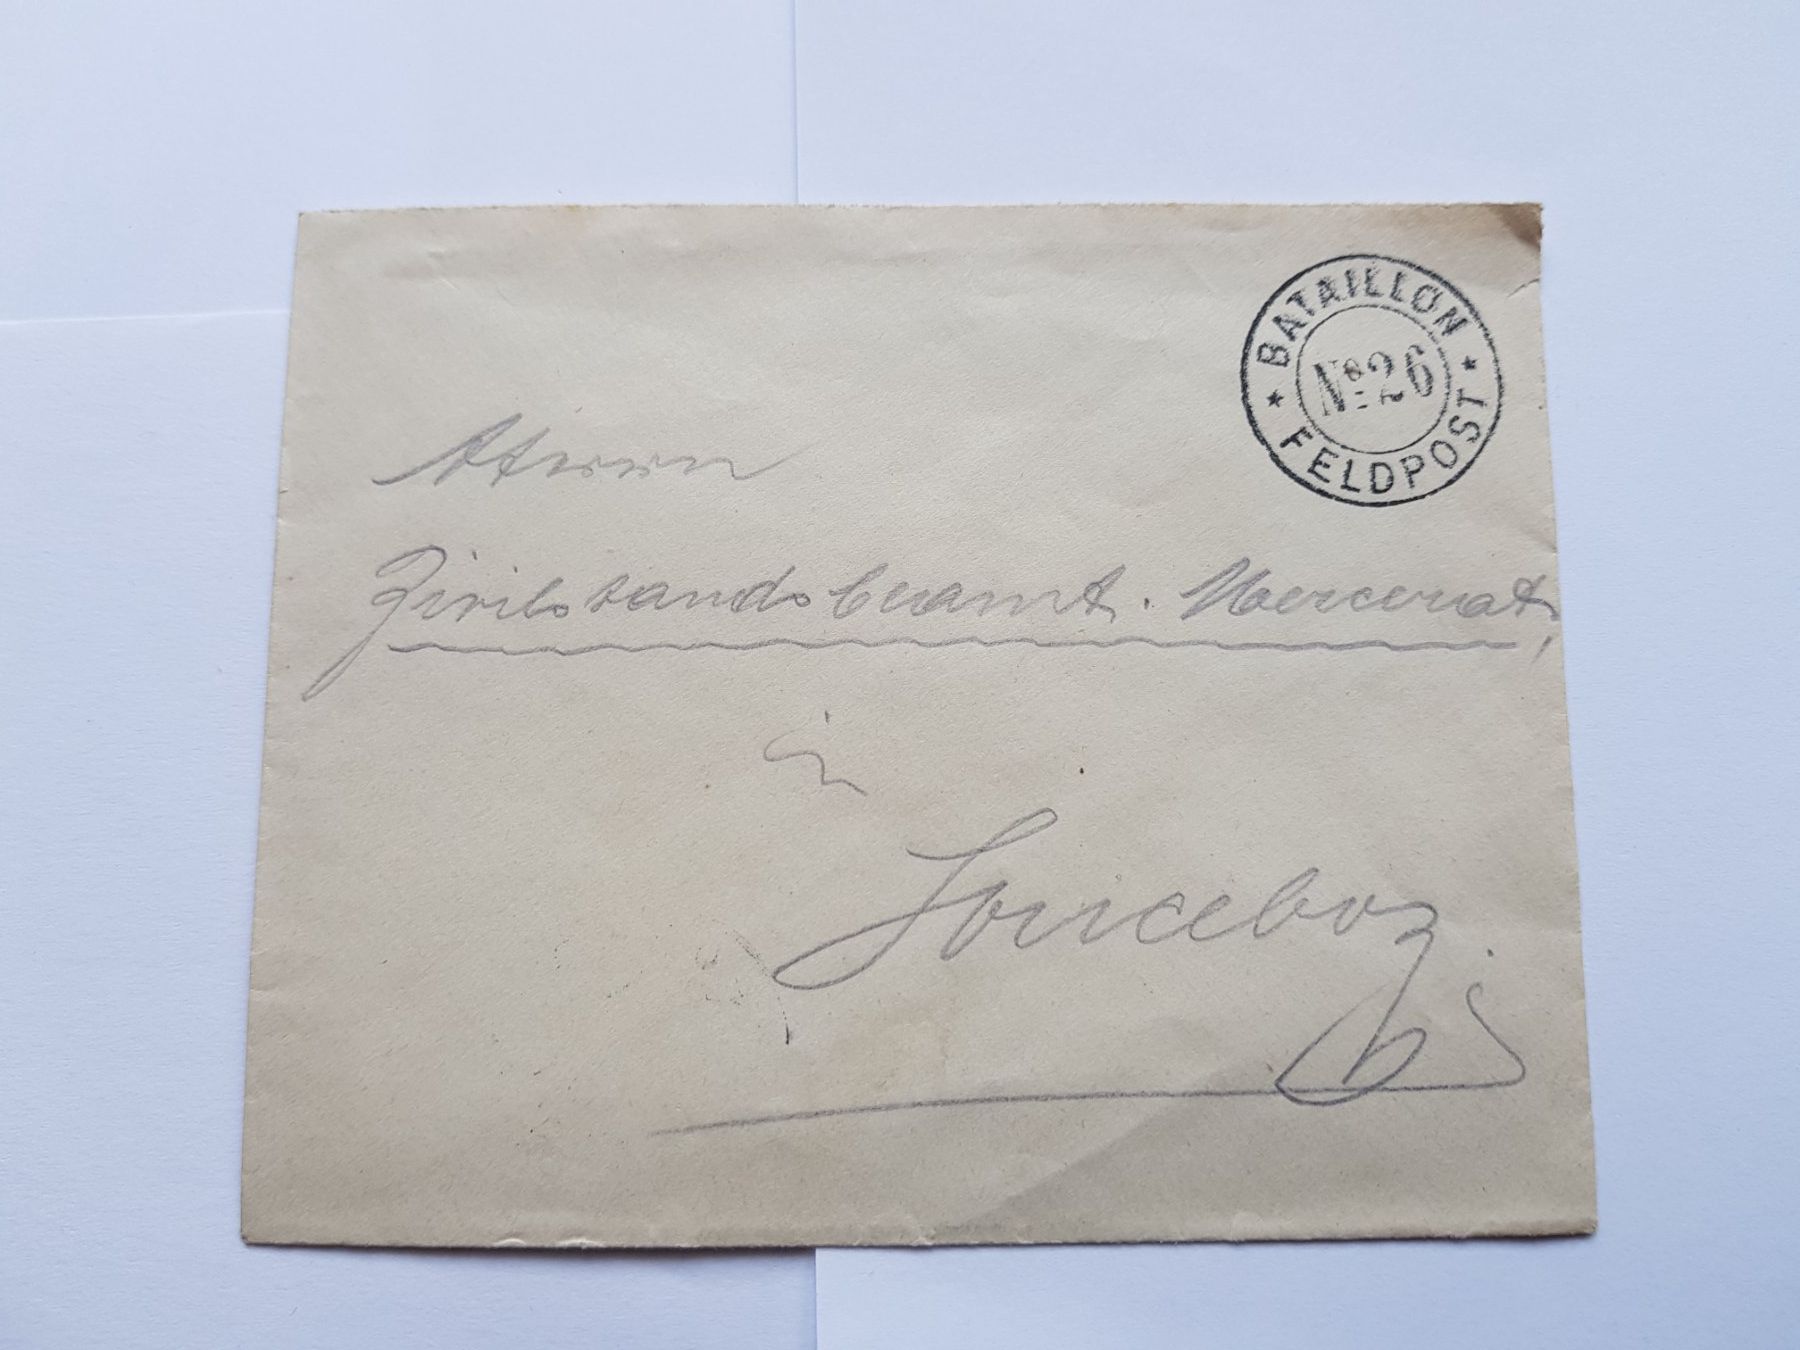 BATAILLON
No 26
FELDPOST
Herrn
Zivilstandsbeamt. Mercerat,
in
Sonceboz.